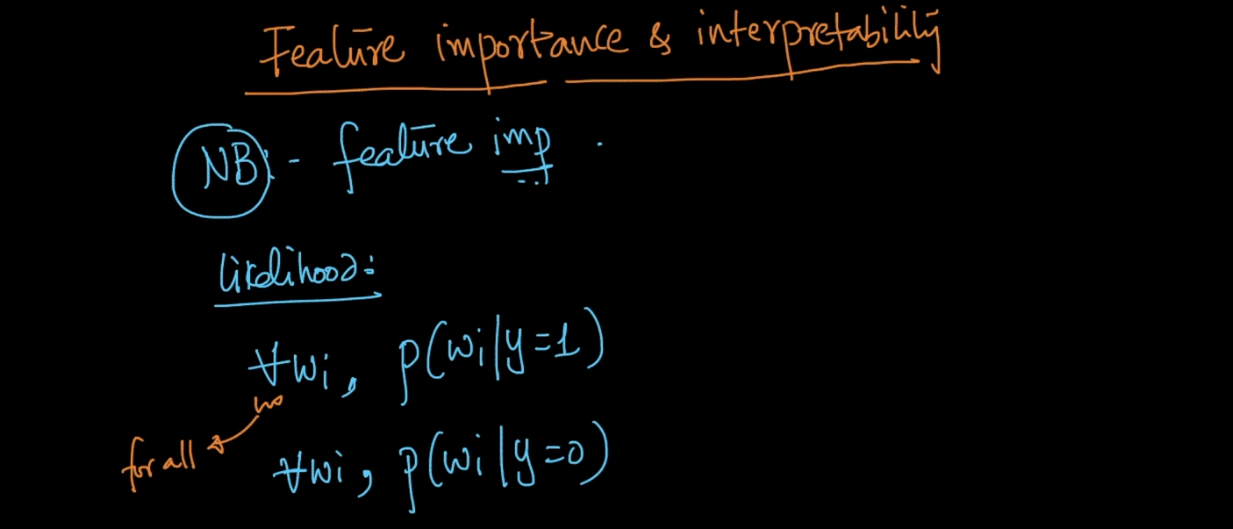 Feature importance & interpretability
NB:- feature imp .
likelihood:
∀wi, p(wi|y=1)
for all
∀wi, p(wi|y=0)